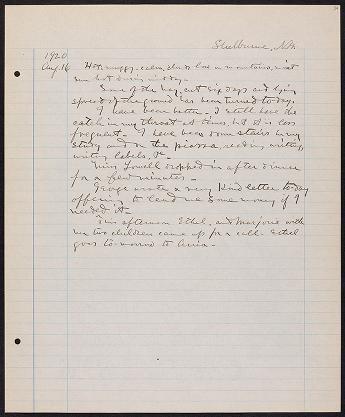 Shelburne, N.H.
1920
Aug. 16 Hot, muggy, calm, clouds low on mountains, mist
sun hot during midday.
Some of the hay, cut six days and lying
spread on the ground has been turned to-day.
I have been better. I still have the
catch in my throat at times but it is less
frequent. I have been down stairs in my
study and on the piazza, reading, writing,
writing labels, &c.
Miss Lowell dropped in after dinner
for a few minutes.
George wrote a very kind letter to-day
offering to lend me some money if I
needed it.
This afternoon Ethel, and Marjorie with
her two children came up for a call. Ethel
goes to-morrow to